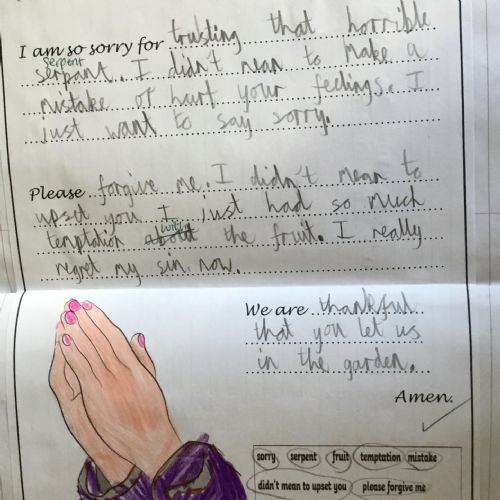 I am so sorry for trusting that horrible
serpent
serpant. I didn't mean to make a
mistake or hurt your feelings. I
just want to say sorry.
Please forgive me. I didn't mean to
upset you I just had so much
with
temptation about the fruit. I really
regret my sin now.
We are thankful
that you let us
in the garden.
Amen.
sorry serpent fruit temptation mistake
didn't mean to upset you please forgive me